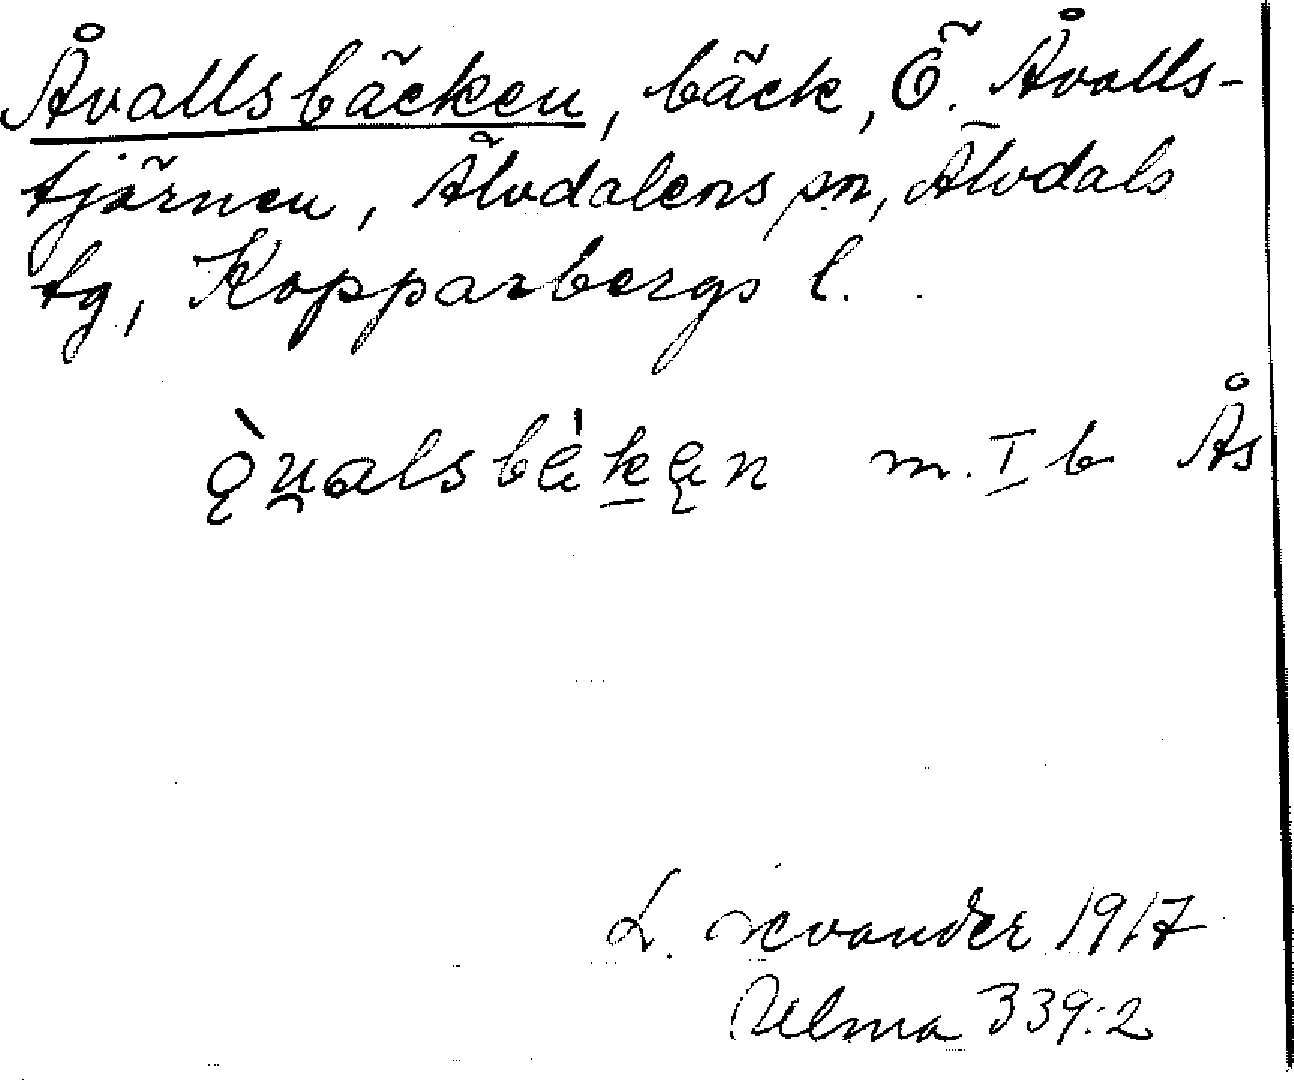 Åvallsbäcken, bäck, Ö. Åvalls-
tjärnen, Älvdalens sn, Älvdals
tg, Kopparbergs l.
m. I b Ås
L. Levander 1917
Ulma 339:2